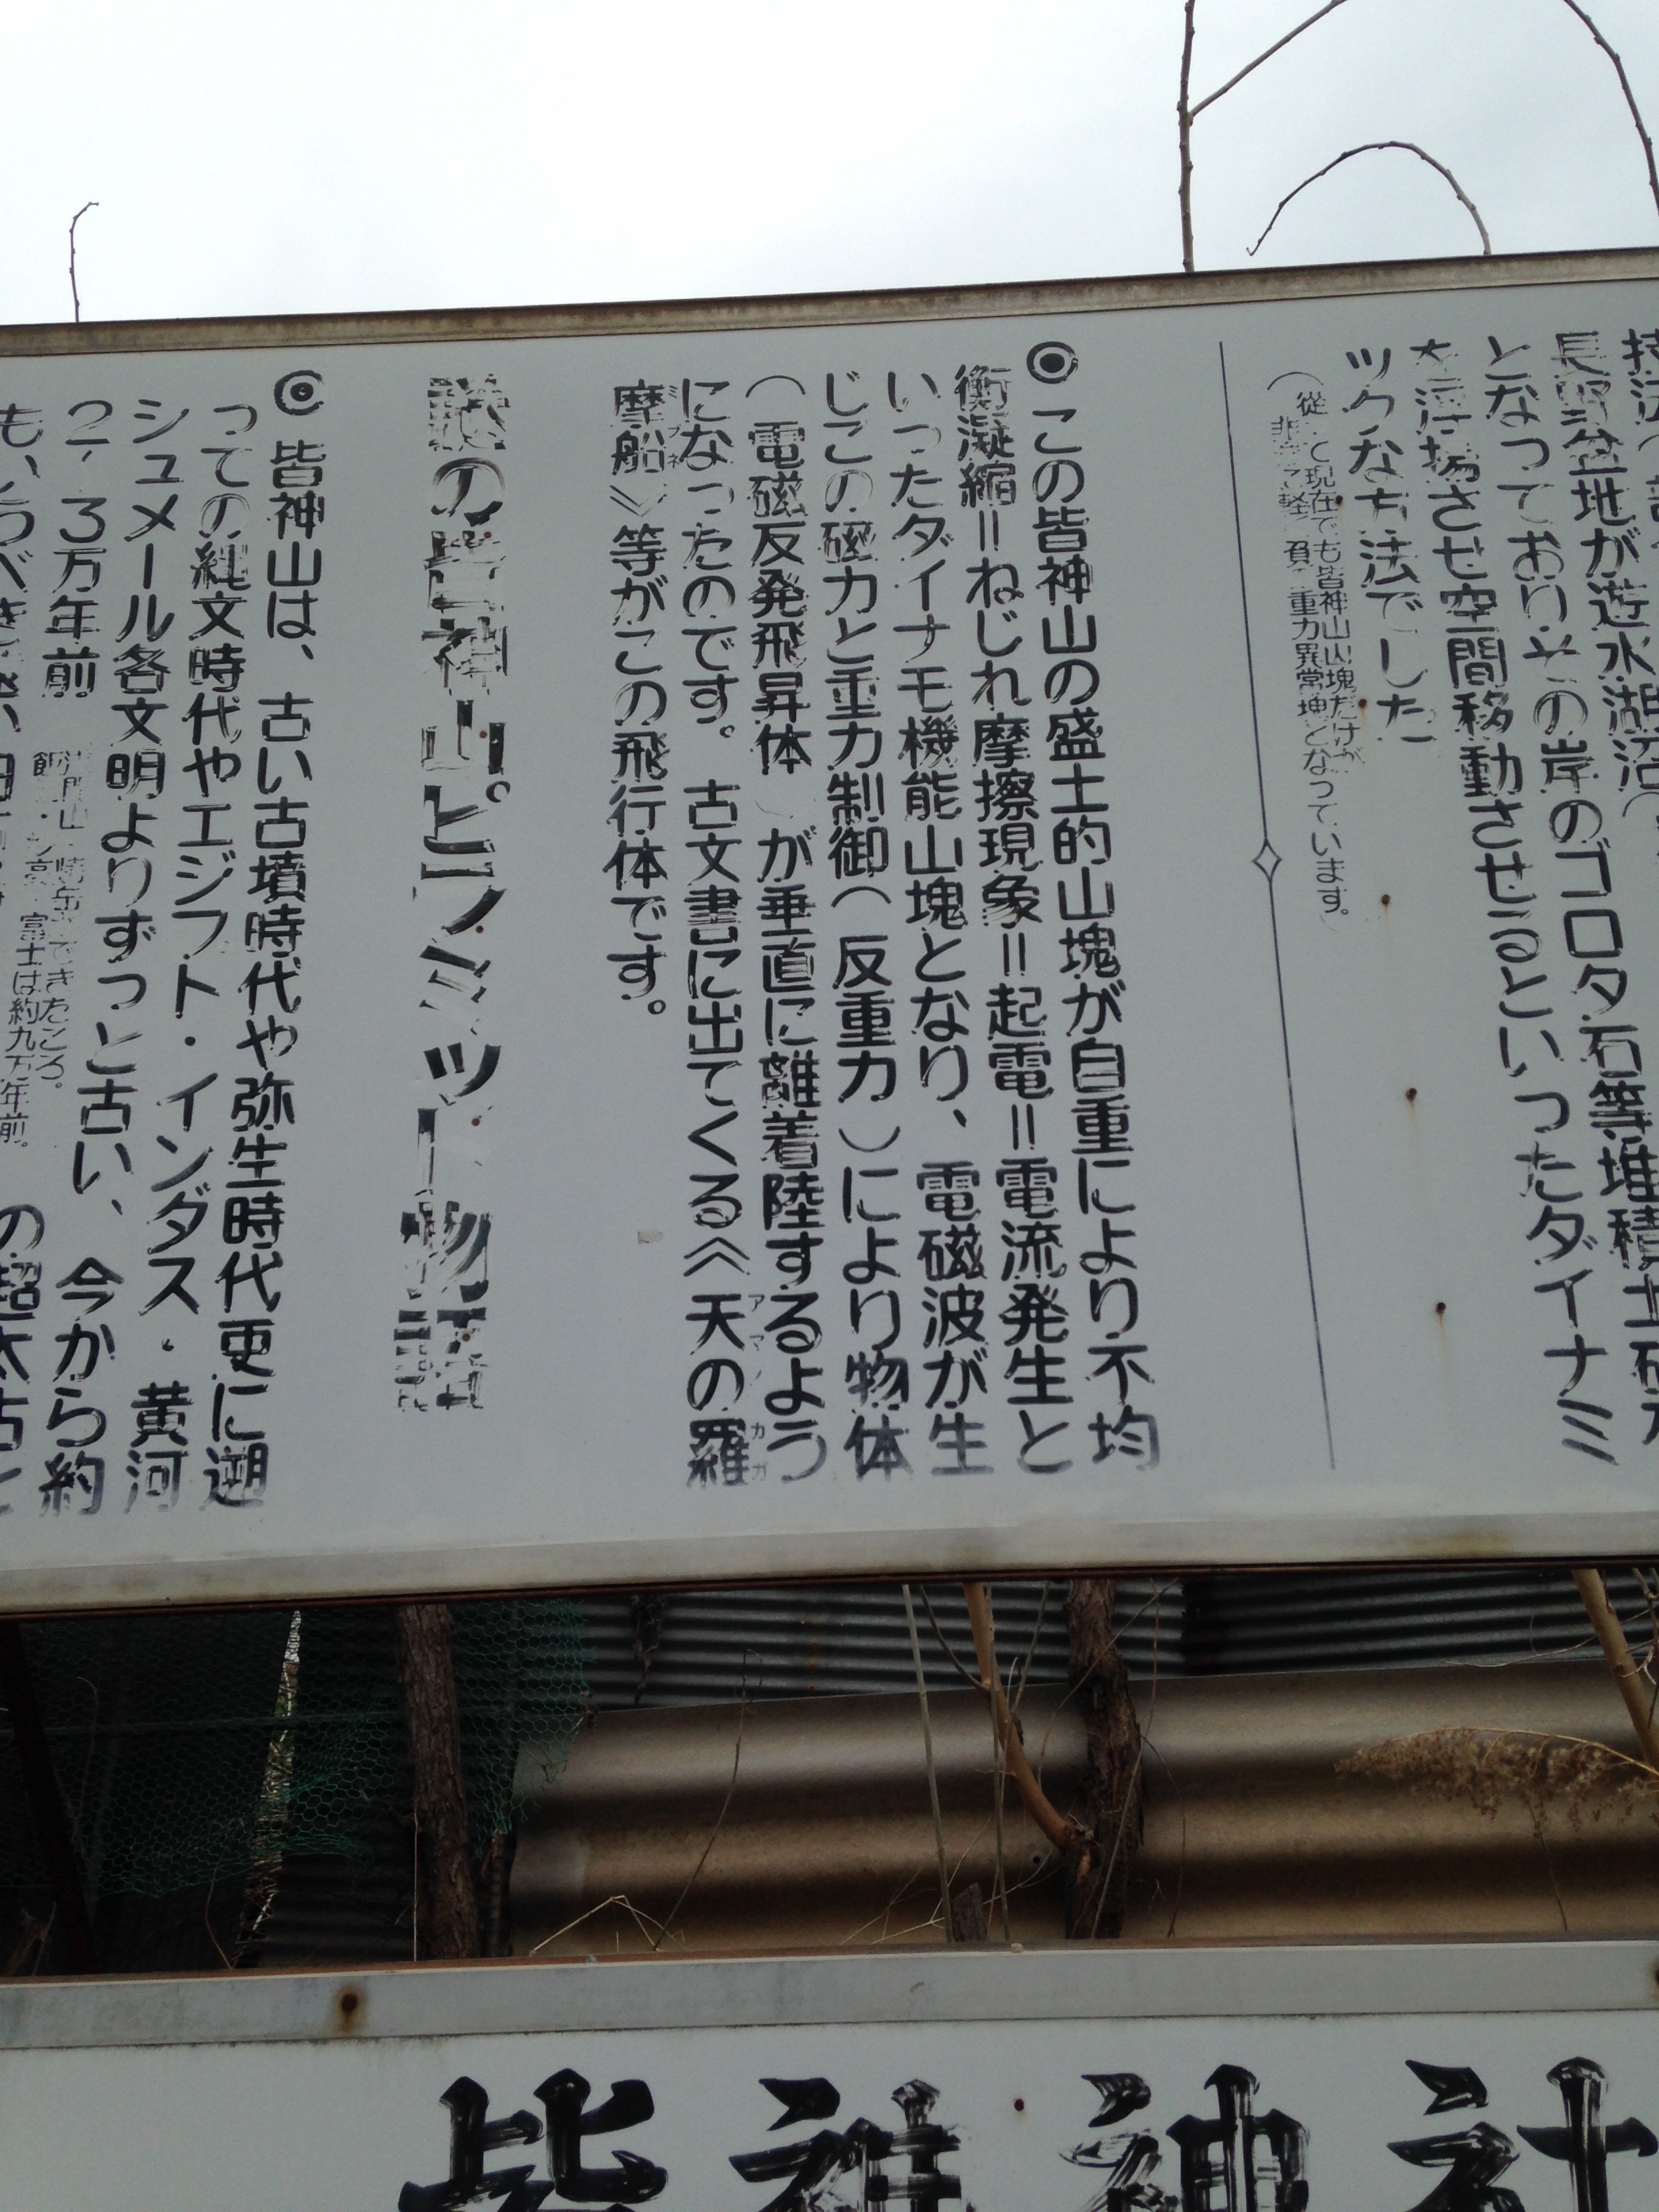 長野盆地が遊水湖沼
となっておりその岸のゴロタ石等堆積土砂
を浮揚させ空間移動させるといったダイナミ
ックな方法でした
（従って現在でも皆神山山塊だけが
非常に軽く負の重力異常塊となっています。）
◎この皆神山の盛土的山塊が自重により不均
衡凝縮＝ねじれ摩擦現象＝起電＝電流発生と
いったダイナモ機能山塊となり、電磁波が生
じこの磁力と重力制御（反重力）により物体
（電磁反発飛昇体）が垂直に離着陸するよう
になったのです。古文書に出てくる《天の羅
摩船》等がこの飛行体です。
謎の皆神山ピラミッド物語
◎皆神山は、古い古墳時代や弥生時代更に遡
っての縄文時代やエジプト・インダス・黄河
シュメール各文明よりずっと古い、今から約
2、3万年前
できたころ。
富士は約九万年前。
の超太古と
もいうべき
皆神神社